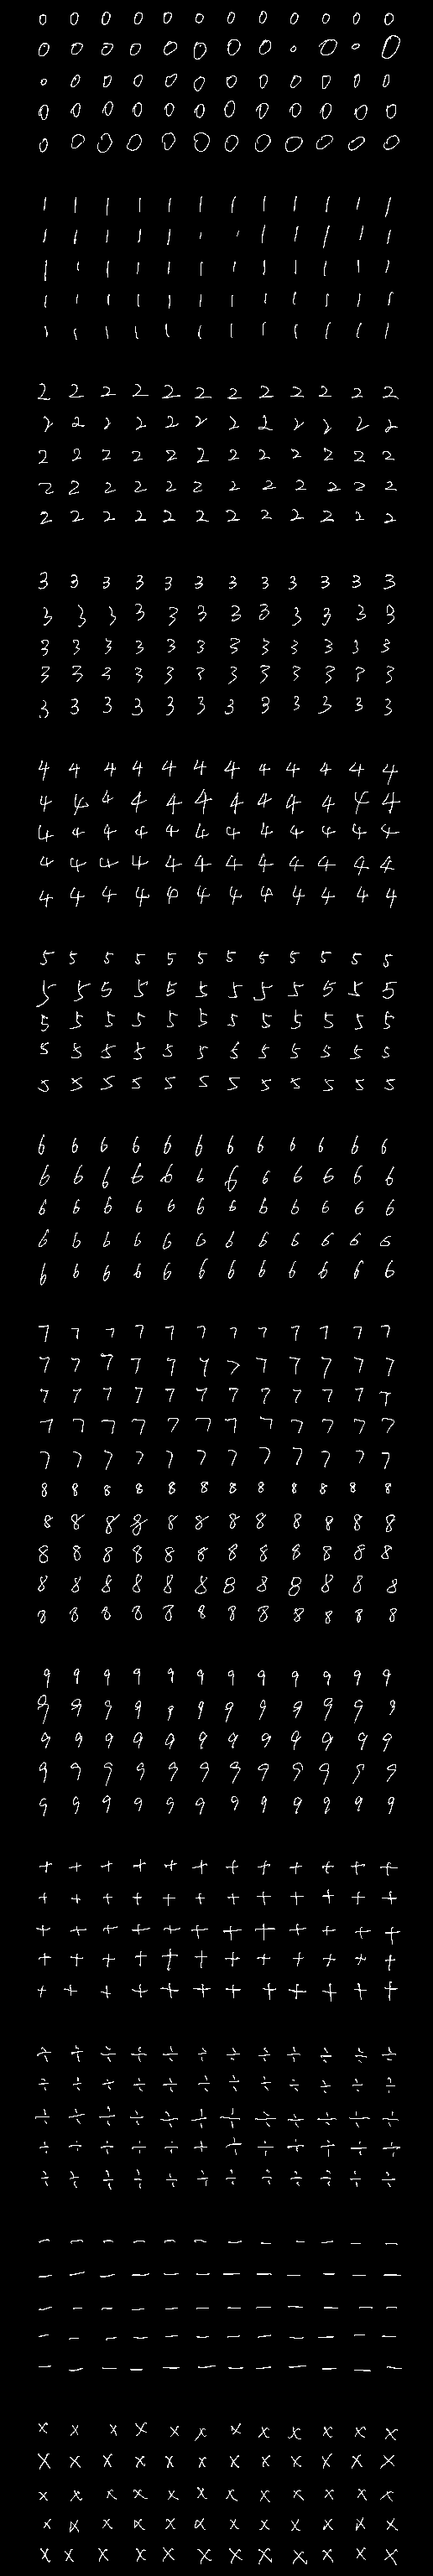 0 0 0 0 0 0 0 0 0 0 0 0
0 0 0 0 0 0 0 0 0 0 0 0
0 0 0 0 0 0 0 0 0 0 0 0
0 0 0 0 0 0 0 0 0 0 0 0
0 0 0 0 0 0 0 0 0 0 0 0
1 1 1 1 1 1 1 1 1 1 1 1
1 1 1 1 1 1 1 1 1 1 1 1
1 1 1 1 1 1 1 1 1 1 1 1
1 1 1 1 1 1 1 1 1 1 1 1
1 1 1 1 1 1 1 1 1 1 1 1
2 2 2 2 2 2 2 2 2 2 2 2
2 2 2 2 2 2 2 2 2 2 2 2
2 2 2 2 2 2 2 2 2 2 2 2
2 2 2 2 2 2 2 2 2 2 2 2
2 2 2 2 2 2 2 2 2 2 2 2
3 3 3 3 3 3 3 3 3 3 3 3
3 3 3 3 3 3 3 3 3 3 3 3
3 3 3 3 3 3 3 3 3 3 3 3
3 3 3 3 3 3 3 3 3 3 3 3
3 3 3 3 3 3 3 3 3 3 3 3
4 4 4 4 4 4 4 4 4 4 4 4
4 4 4 4 4 4 4 4 4 4 4 4
4 4 4 4 4 4 4 4 4 4 4 4
4 4 4 4 4 4 4 4 4 4 4 4
4 4 4 4 4 4 4 4 4 4 4 4
5 5 5 5 5 5 5 5 5 5 5 5
5 5 5 5 5 5 5 5 5 5 5 5
5 5 5 5 5 5 5 5 5 5 5 5
5 5 5 5 5 5 5 5 5 5 5 5
5 5 5 5 5 5 5 5 5 5 5 5
6 6 6 6 6 6 6 6 6 6 6 6
6 6 6 6 6 6 6 6 6 6 6 6
6 6 6 6 6 6 6 6 6 6 6 6
6 6 6 6 6 6 6 6 6 6 6 6
6 6 6 6 6 6 6 6 6 6 6 6
7 7 7 7 7 7 7 7 7 7 7 7
7 7 7 7 7 7 7 7 7 7 7 7
7 7 7 7 7 7 7 7 7 7 7 7
7 7 7 7 7 7 7 7 7 7 7 7
7 7 7 7 7 7 7 7 7 7 7 7
8 8 8 8 8 8 8 8 8 8 8 8
8 8 8 8 8 8 8 8 8 8 8 8
8 8 8 8 8 8 8 8 8 8 8 8
8 8 8 8 8 8 8 8 8 8 8 8
8 8 8 8 8 8 8 8 8 8 8 8
9 9 9 9 9 9 9 9 9 9 9 9
9 9 9 9 9 9 9 9 9 9 9 9
9 9 9 9 9 9 9 9 9 9 9 9
9 9 9 9 9 9 9 9 9 9 9 9
9 9 9 9 9 9 9 9 9 9 9 9
+ + + + + + + + + + + +
+ + + + + + + + + + + +
+ + + + + + + + + + + +
+ + + + + + + + + + + +
+ + + + + + + + + + + +
÷ ÷ ÷ ÷ ÷ ÷ ÷ ÷ ÷ ÷ ÷ ÷
÷ ÷ ÷ ÷ ÷ ÷ ÷ ÷ ÷ ÷ ÷ ÷
÷ ÷ ÷ ÷ ÷ ÷ ÷ ÷ ÷ ÷ ÷ ÷
÷ ÷ ÷ ÷ ÷ ÷ ÷ ÷ ÷ ÷ ÷ ÷
÷ ÷ ÷ ÷ ÷ ÷ ÷ ÷ ÷ ÷ ÷ ÷
- - - - - - - - - - - -
- - - - - - - - - - - -
- - - - - - - - - - - -
- - - - - - - - - - - -
- - - - - - - - - - - -
× × × × × × × × × × × ×
× × × × × × × × × × × ×
× × × × × × × × × × × ×
× × × × × × × × × × × ×
× × × × × × × × × × × ×